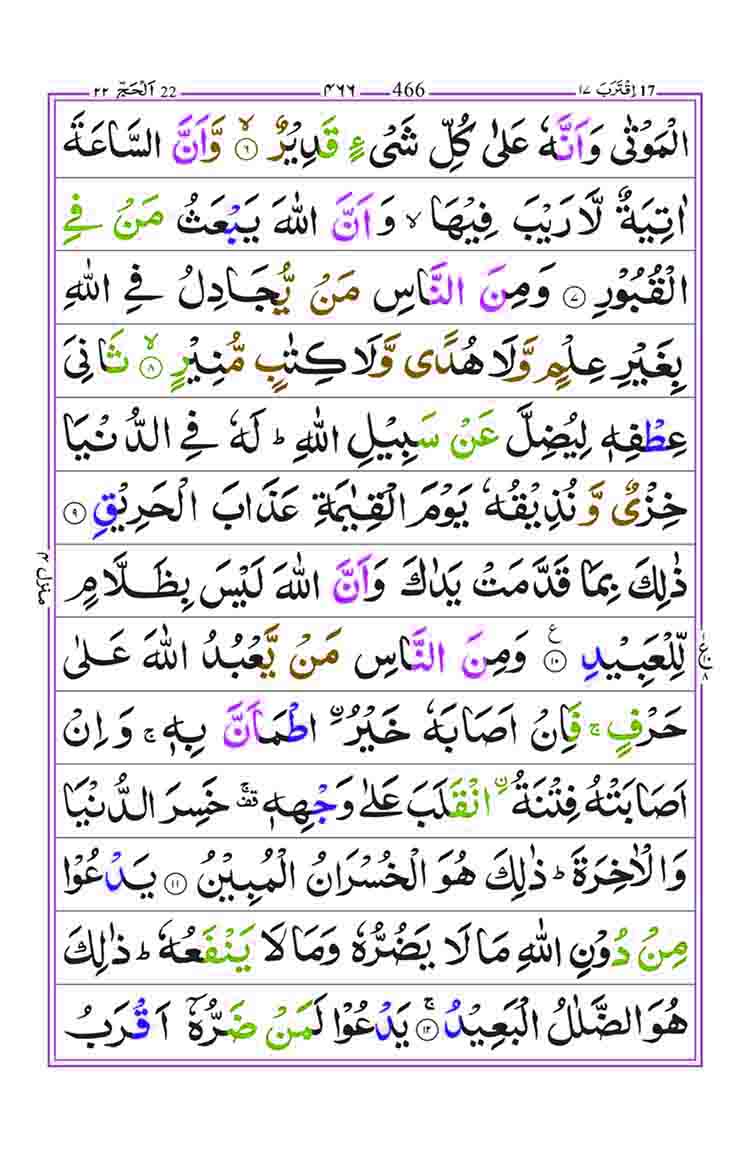 17 اِقْتَرَبَ ١٧ 466 ۴۶۶ 22 اَلْحَجّ ٢٢
الْمَوْتٰى وَاَنَّهٗ عَلٰى كُلِّ شَىْءٍ قَدِيْرٌ ۙ‏﴿۶﴾ وَّاَنَّ السَّاعَةَ
اٰتِيَةٌ لَّا رَيْبَ فِيْهَا ۙ وَاَنَّ اللّٰهَ يَبْعَثُ مَنْ فِى
الْقُبُوْرِ ﴿۷﴾ وَمِنَ النَّاسِ مَنْ يُّجَادِلُ فِى اللّٰهِ
بِغَيْرِ عِلْمٍ وَّلَا هُدًى وَّلَا كِتٰبٍ مُّنِيْرٍ ۙ‏﴿۸﴾ ثَانِىَ
عِطْفِهٖ لِيُضِلَّ عَنْ سَبِيْلِ اللّٰهِ ؕ لَهٗ فِى الدُّنْيَا
خِزْىٌ وَّنُذِيْقُهٗ يَوْمَ الْقِيٰمَةِ عَذَابَ الْحَرِيْقِ ﴿۹﴾
ذٰلِكَ بِمَا قَدَّمَتْ يَدٰكَ وَاَنَّ اللّٰهَ لَيْسَ بِظَلَّامٍ
لِّلْعَبِيْدِ ﴿۱۰﴾ ع وَمِنَ النَّاسِ مَنْ يَّعْبُدُ اللّٰهَ عَلٰى
حَرْفٍ ۚ فَاِنْ اَصَابَهٗ خَيْرُ ۨ اطْمَاَنَّ بِهٖ ۚ وَاِنْ
اَصَابَتْهُ فِتْنَةُ ۨ انْقَلَبَ عَلٰى وَجْهِهٖ ۚ قف خَسِرَ الدُّنْيَا
وَالْاٰخِرَةَ ؕ ذٰلِكَ هُوَ الْخُسْرَانُ الْمُبِيْنُ ﴿۱۱﴾ يَدْعُوْا
مِنْ دُوْنِ اللّٰهِ مَا لَا يَضُرُّهٗ وَمَا لَا يَنْفَعُهٗ ؕ ذٰلِكَ
هُوَ الضَّلٰلُ الْبَعِيْدُ ۚ‏﴿۱۲﴾ يَدْعُوْا لَمَنْ ضَرُّهٗۤ اَقْرَبُ
منزل ۴